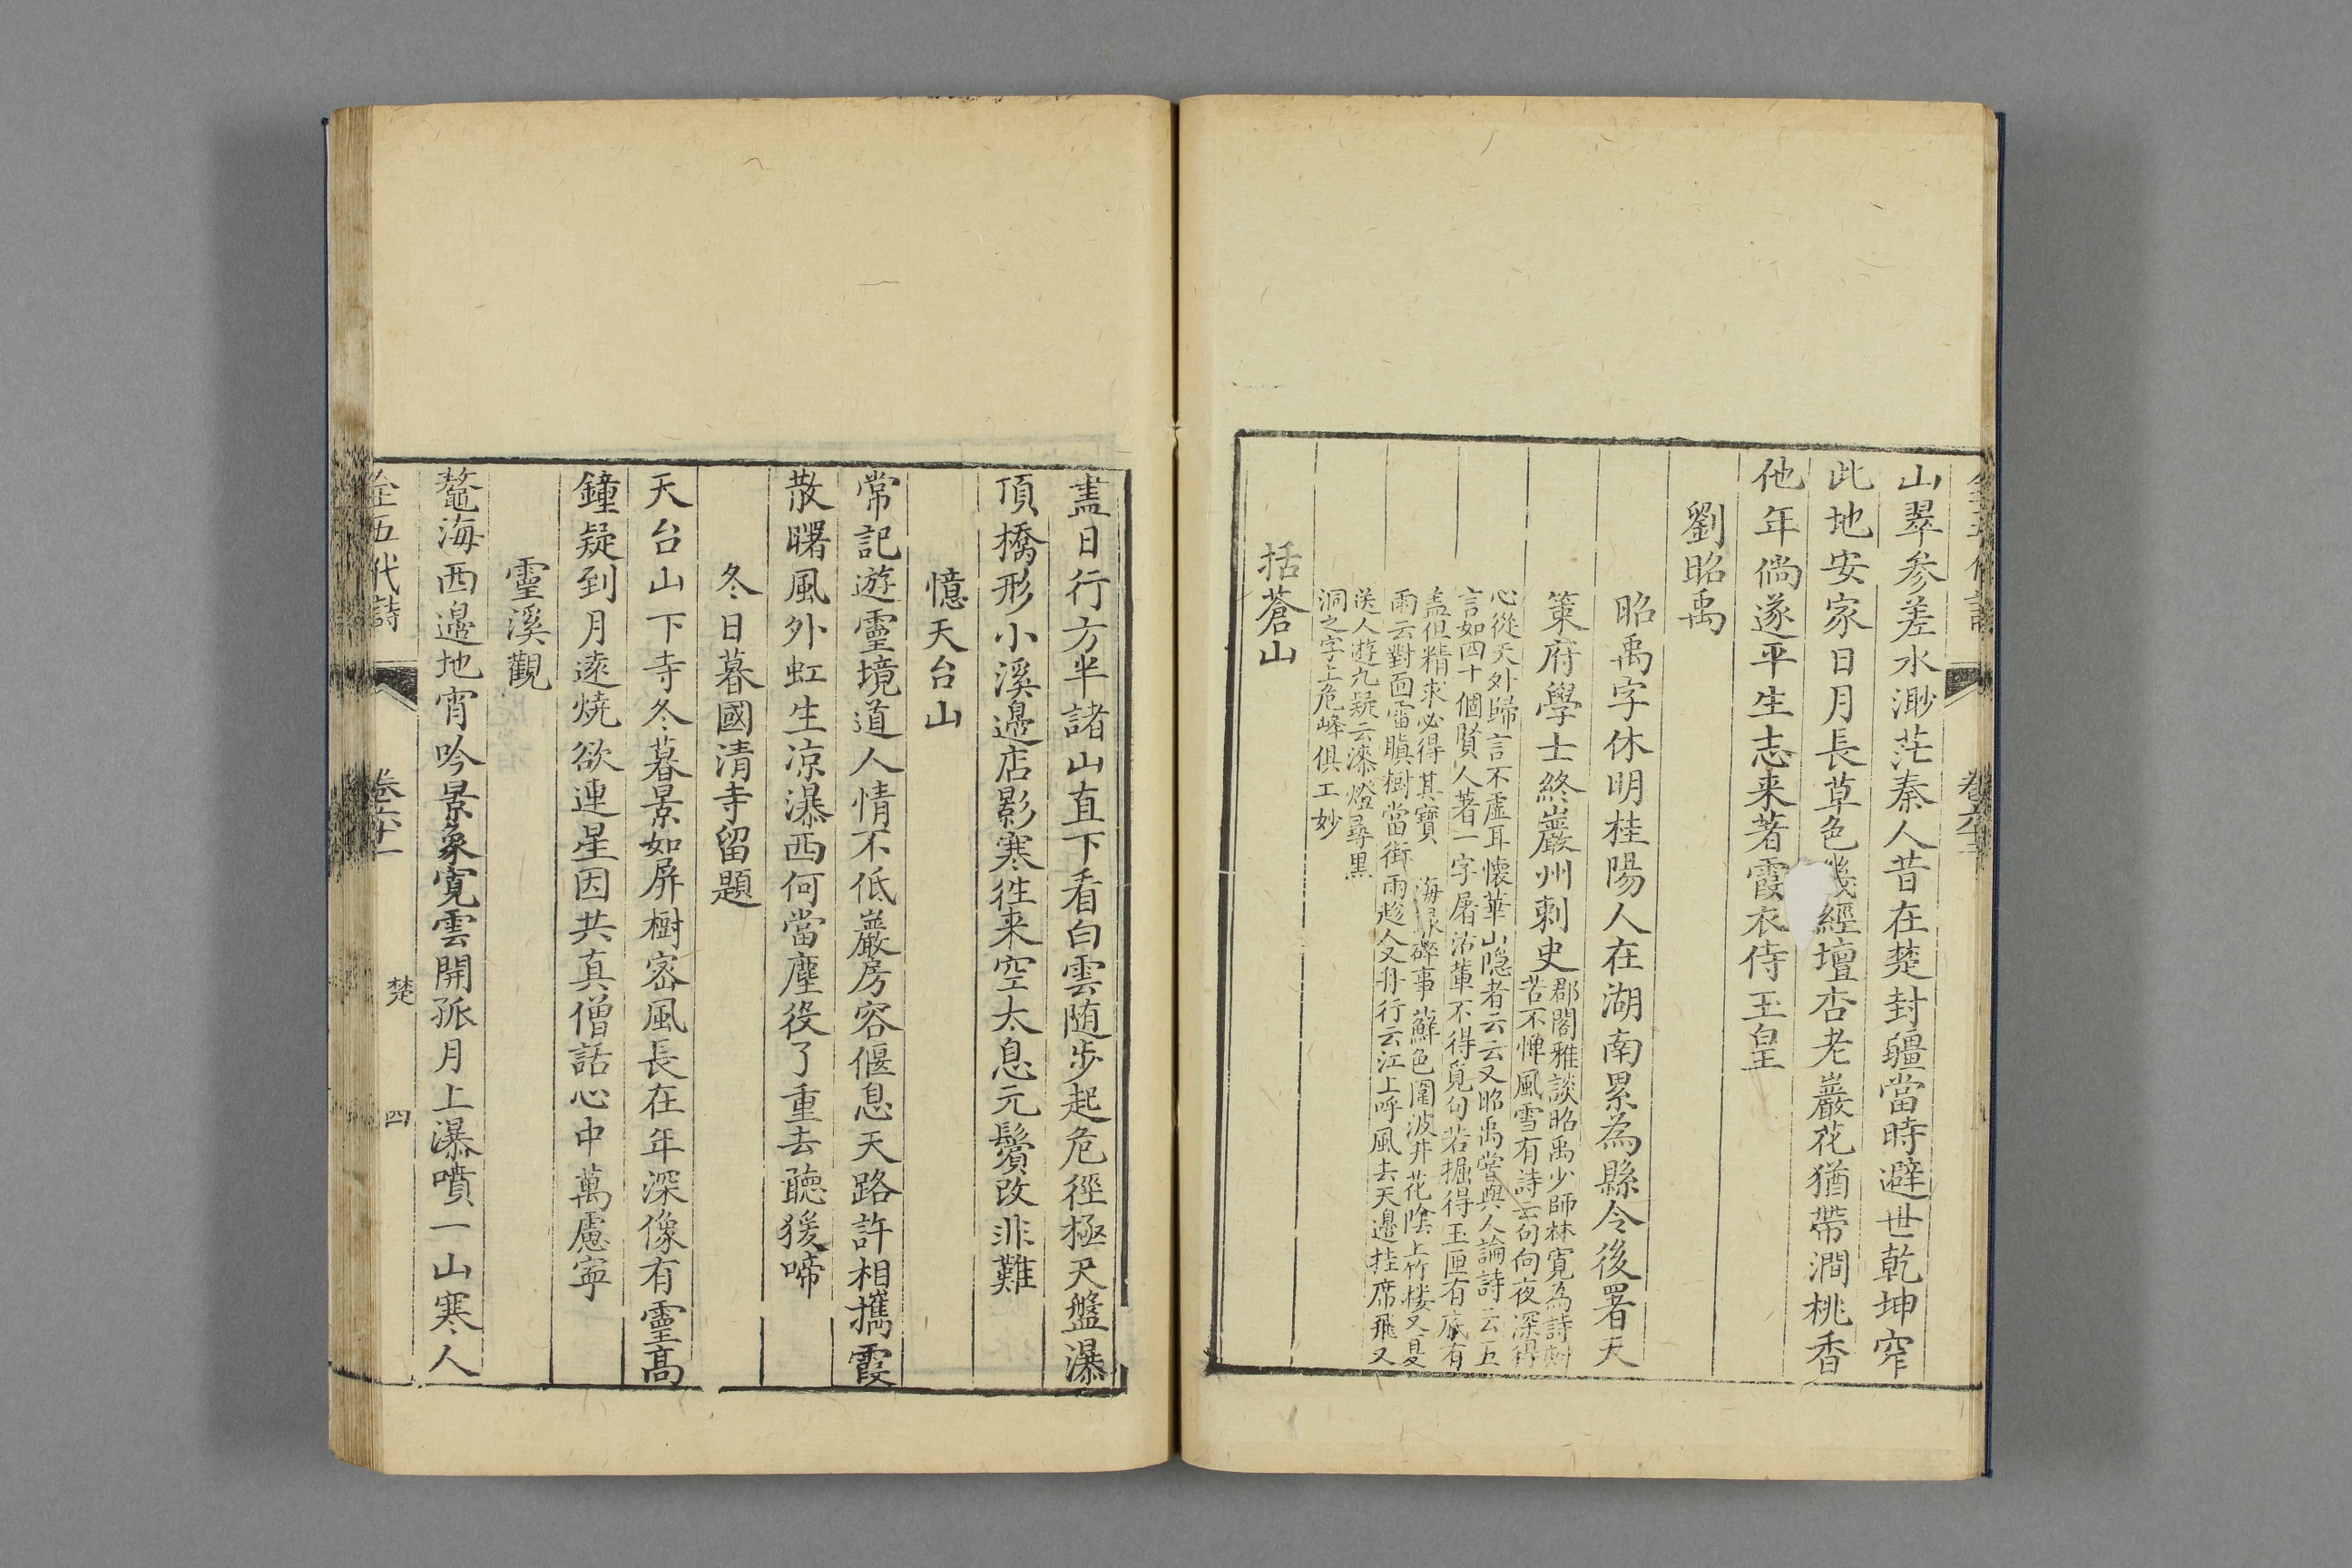 山翠参差水渺茫秦人昔在楚封疆當時避世乾坤窄
此地安家日月長草色 經壇杏老巖花猶帶澗桃香
他年倘遂平生志来著霞衣侍玉皇
劉昭禹
昭禹字休明桂陽人在湖南累為縣令後署天
策府學士終巖州刺史
郡閣雅談昭禹少師林寛為詩刻
苦不憚風雪有詩云句向夜深得
心從天外歸言不虚耳懷華山隐者云云又昭禹嘗與人論詩云五
言如四十個賢人著一字屠沽輩不得覓句若掘得玉匣有底有
盖但精求必得其寶 海録碎事蘚色圍波井花陰上竹楼又夏
雨云對面雷瞋樹當街雨趁人又舟行云江上呼風去天邉挂席飛又
送人遊九疑云漆燈尋黒
洞之字上危峰俱工妙
括蒼山
盡日行方半諸山直下看白雲随步起危徑極天盤瀑
頂橋形小溪邉店影寒徃来空太息元鬢改非難
憶天台山
常記遊靈境道人情不低巖房容偃息天路許相攜霞
散曙風外虹生凉瀑西何當塵役了重去聽猨啼
冬日暮國清寺留題
天台山下寺冬暮景如屏樹宻風長在年深像有靈高
鐘疑到月遠燒欲連星因共真僧話心中萬慮寧
靈溪觀
鼇海西邉地宵吟景象寛雲開孤月上瀑噴一山寒人
全五代詩 卷六十一 楚 四